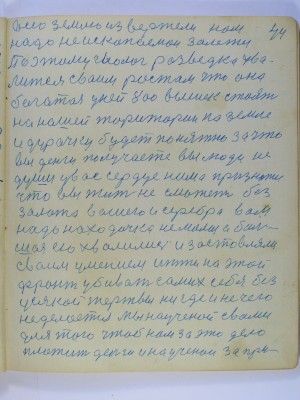 44
его землю извержени нам
надо не ископаемой залежи
Поэтому геолог разведка хва-
лится своим ростом что она
богатая у ней 800 вышек стоят
на нашей територии на земле
и дурачку будет понятно за что
вы деньги получаете вы люди не
души у вас сердце нима признати
что вы жить не сможете без
золота вашего и серебра вам
надо находится немало а боль-
шая его хвалилися и заставляли
своим умением итти на этой
фронт убивать самих себя без
усякой жертвы ни где и нечего
не делается мы наученой свами
для того чтоб нам за это дело
платит деньги и наученой за пры-